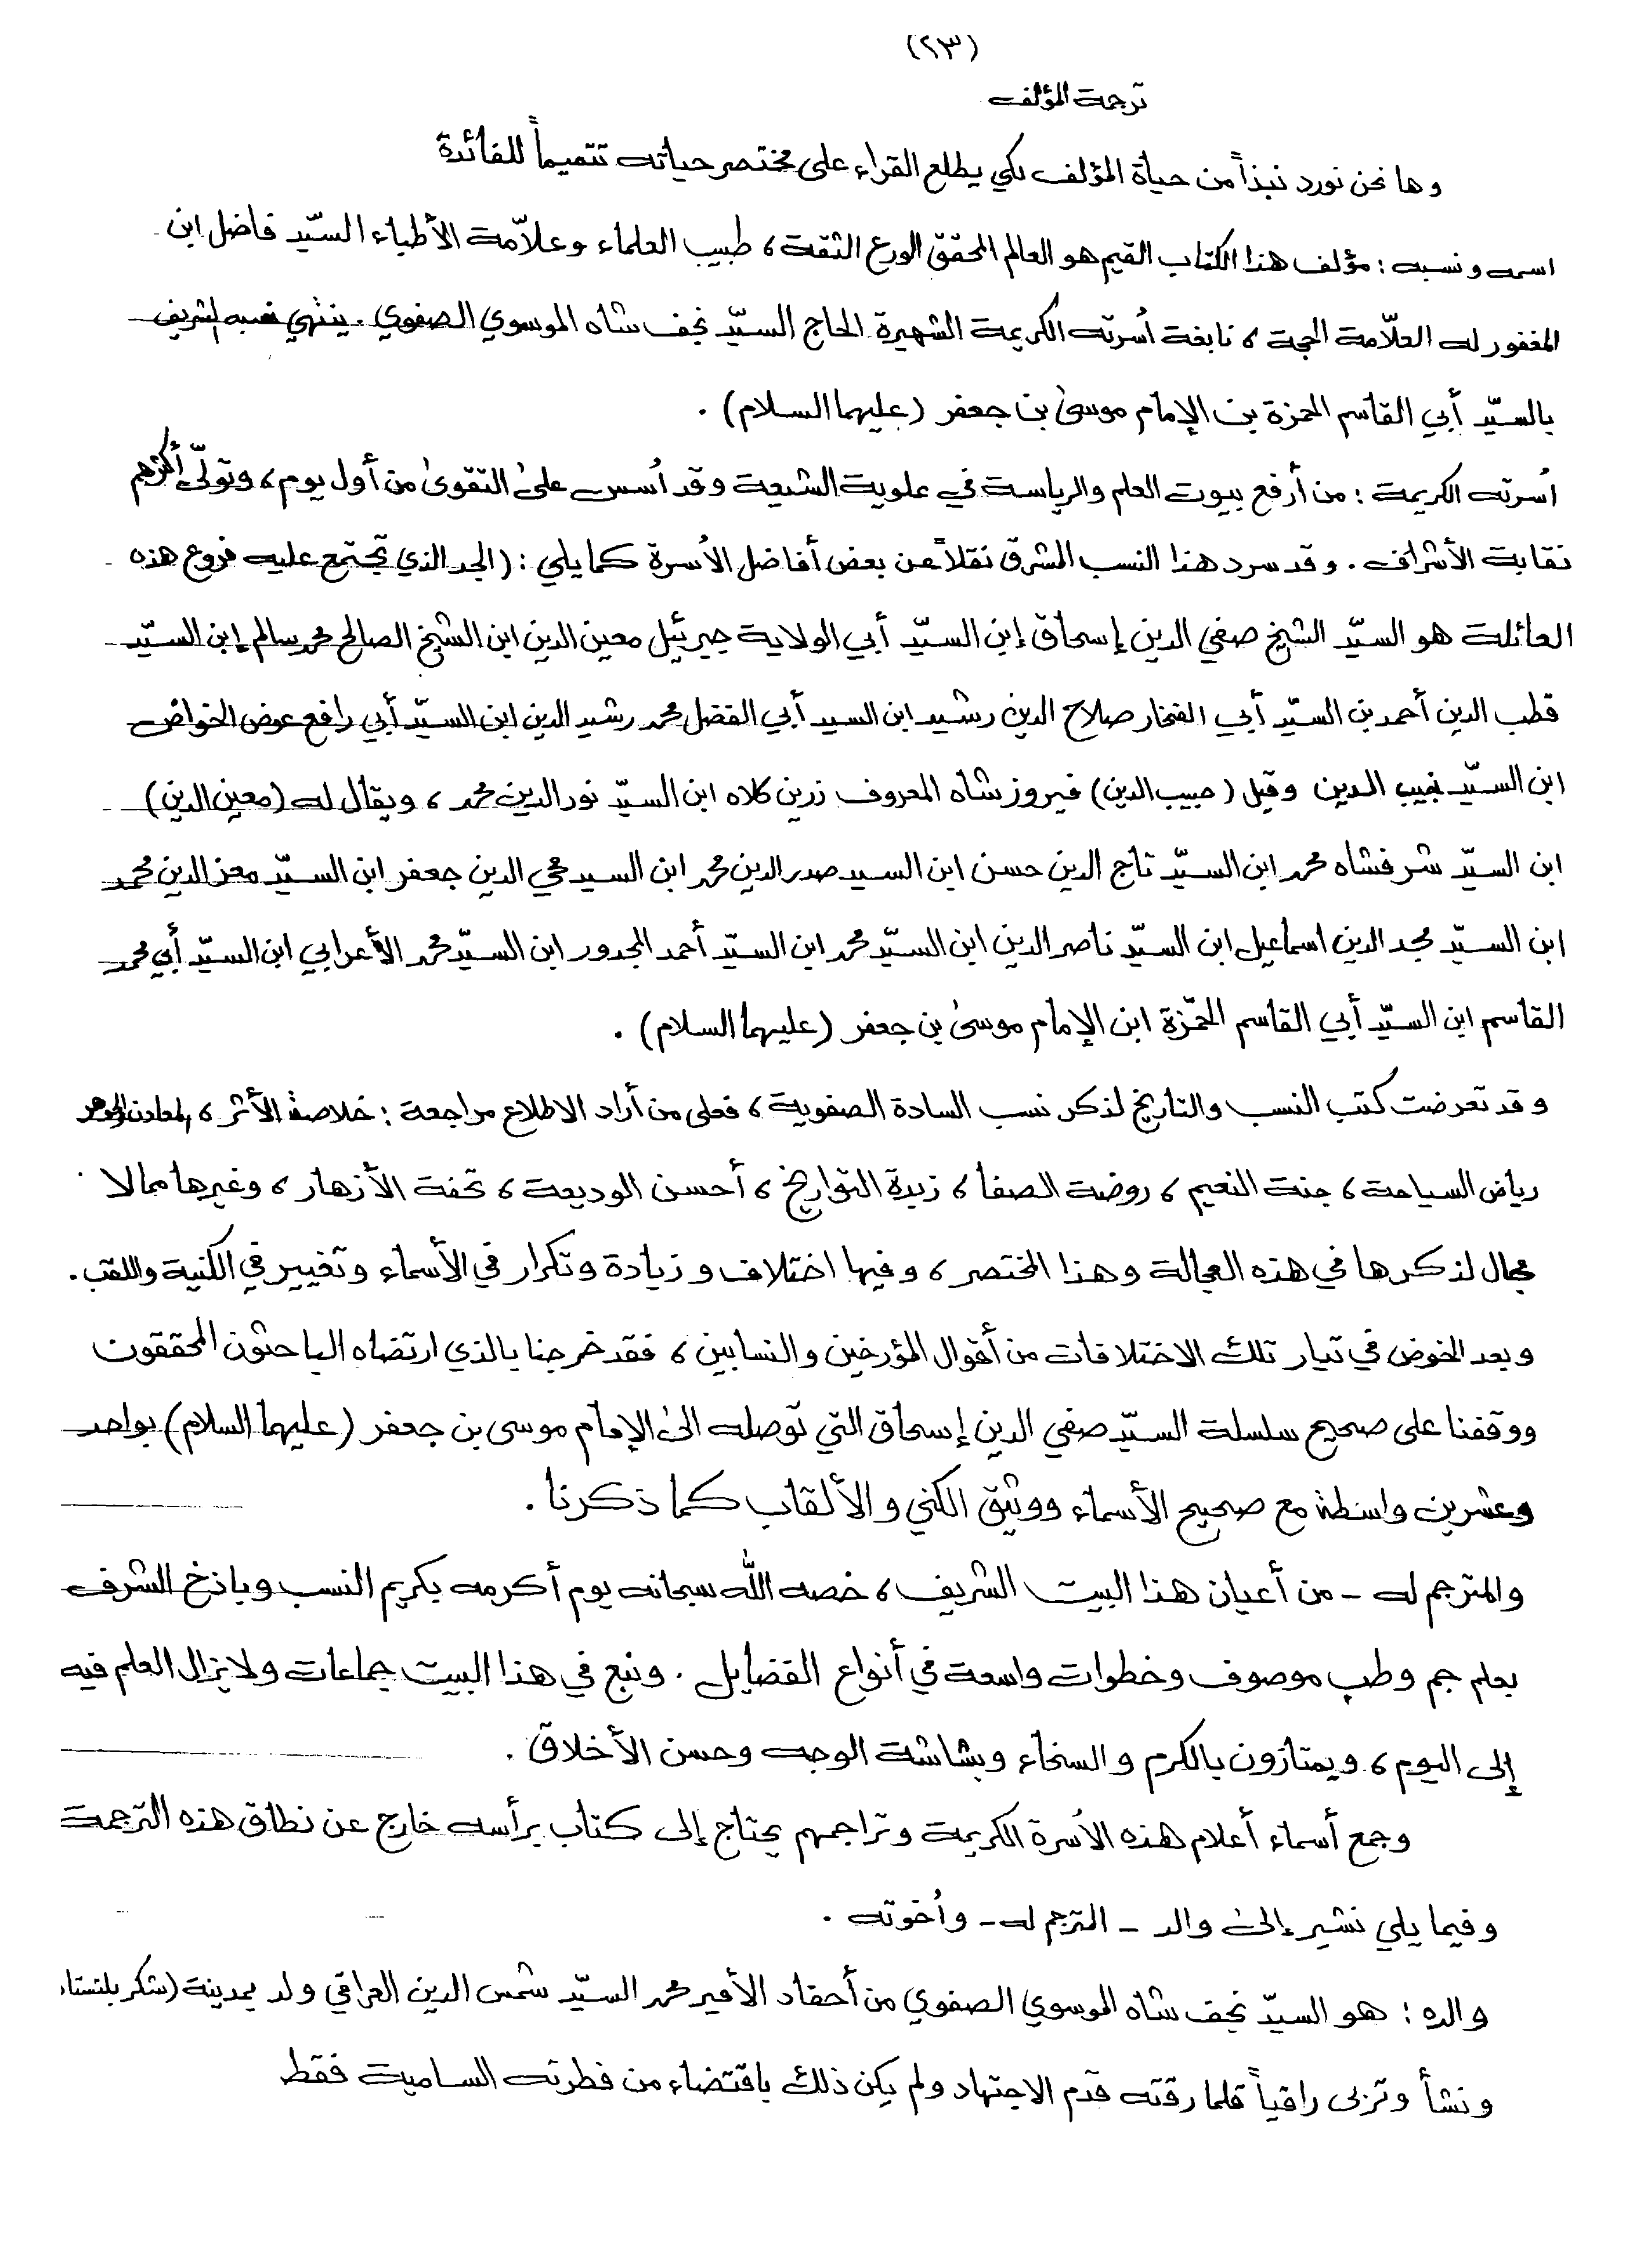 (٢٣)
ترجمة المؤلف
وها نحن نورد نبذاً من حياة المؤلف لكي يطلع القراء على مختصر حياته تتميماً للفائدة
اسمه ونسبه : مؤلف هذا الكتاب القيم هو العالم المحقق الورع الثقة ، طبيب العلماء وعلاّمة الأطباء السيّد فاضل ابن
المغفور له العلاّمة الحجة ، نابغة أسرته الكريمة الشهيرة الحاج السيّد نجف شاه الموسوي الصفوي . ينتهي نسبه الشريف
بالسيّد أبي القاسم الحمزة بن الإمام موسىٰ بن جعفر (عليهما السلام) .
اُسرته الكريمة : من أرفع بيوت العلم والرياسة في علوية الشيعة وقد اُسس علىٰ التقوىٰ من أول يوم ، وتولّى أكثرهم
نقابة الأشراف . وقد سرد هذا النسب المشرق نقلاً عن بعض أفاضل الاُسرة كما يلي : (الجد الذي تجتمع عليه فروع هذه
العائلة هو السيّد الشيخ صفي الدين إسحاق إبن السيّد أبي الولاية جبرئيل معين الدين ابن الشيخ الصالح محمد سالم إبن السيّد
قطب الدين أحمد بن السيّد أبي الفخار صلاح الدين رشيد ابن السيد أبي الفضل محمد رشيد الدين ابن السيّد أبي رافع عوض الخواص
ابن السيّد نجيب الدين وقيل (حبيب الدين) فيروز شاه المعروف زرين كلاه ابن السيّد نور الدين محمد ، ويقال له (معين الدين)
ابن السيّد شرفشاه محمد ابن السيّد تاج الدين حسن ابن السيد صدر الدين محمد ابن السيد محي الدين جعفر ابن السيّد معز الدين محمد
ابن السيّد مجد الدين اسماعيل ابن السيّد ناصر الدين ابن السيّد محمد ابن السيّد أحمد المجدور ابن السيّد محمد الأعرابي ابن السيّد أبي محمد
القاسم ابن السيّد أبي القاسم الحمّزة ابن الإمام موسىٰ بن جعفر (عليهما السلام) .
وقد تعرضت كتب النسب والتاريخ لذكر نسب السادة الصفوية ، فعلى من أراد الاطلاع مراجعة : خلاصة الأثر ،
رياض السياحة ، جنة النعيم ، روضة الصفا ، زبدة التواريخ ، أحسن الوديعة ، تحفة الأزهار ، وغيرها مما لا
مجال لذكرها في هذه العجالة وهذا المختصر ، وفيها اختلاف وزيادة وتكرار في الأسماء وتغيير في الكنية واللقب .
وبعد الخوض في تيار تلك الاختلافات من أقوال المؤرخين والنسابين ، فقد خرجنا بالذي ارتضاه الباحثون المحققون
ووقفنا على صحيح سلسلة السيّد صفي الدين إسحاق التي توصله الىٰ الإمام موسى بن جعفر (عليهما السلام) بواحد
وعشرين واسطة مع صحيح الأسماء ووثيق الكني والألقاب كما ذكرنا .
والمترجم له - من أعيان هذا البيت الشريف ، خصه الله سبحانه يوم أكرمه بكريم النسب وباذخ الشرف
بعلم جم وطب موصوف وخطوات واسعة في أنواع الفضايل . ونبع في هذا البيت جماعات ولا يزال العلم فيه
إلى اليوم ، ويمتازون بالكرم والسخاء وبشاشة الوجه وحسن الأخلاق .
وجمع أسماء أعلام هذه الاُسرة الكريمة وتراجمهم يحتاج إلى كتاب برأسه خارج عن نطاق هذه الترجمة
وفيما يلي نشير إلىٰ والد - المترجم له - واُخوته .
والده : هو السيّد نجف شاه الموسوي الصفوي من أحفاد الأمير محمد السيّد شمس الدين العراقي ولد بمدينة (شكر بلتستا
ونشأ وتربى راقياً قلما رقته قدم الاجتهاد ولم يكن ذلك باقتضاء من فطرته السامية فقط